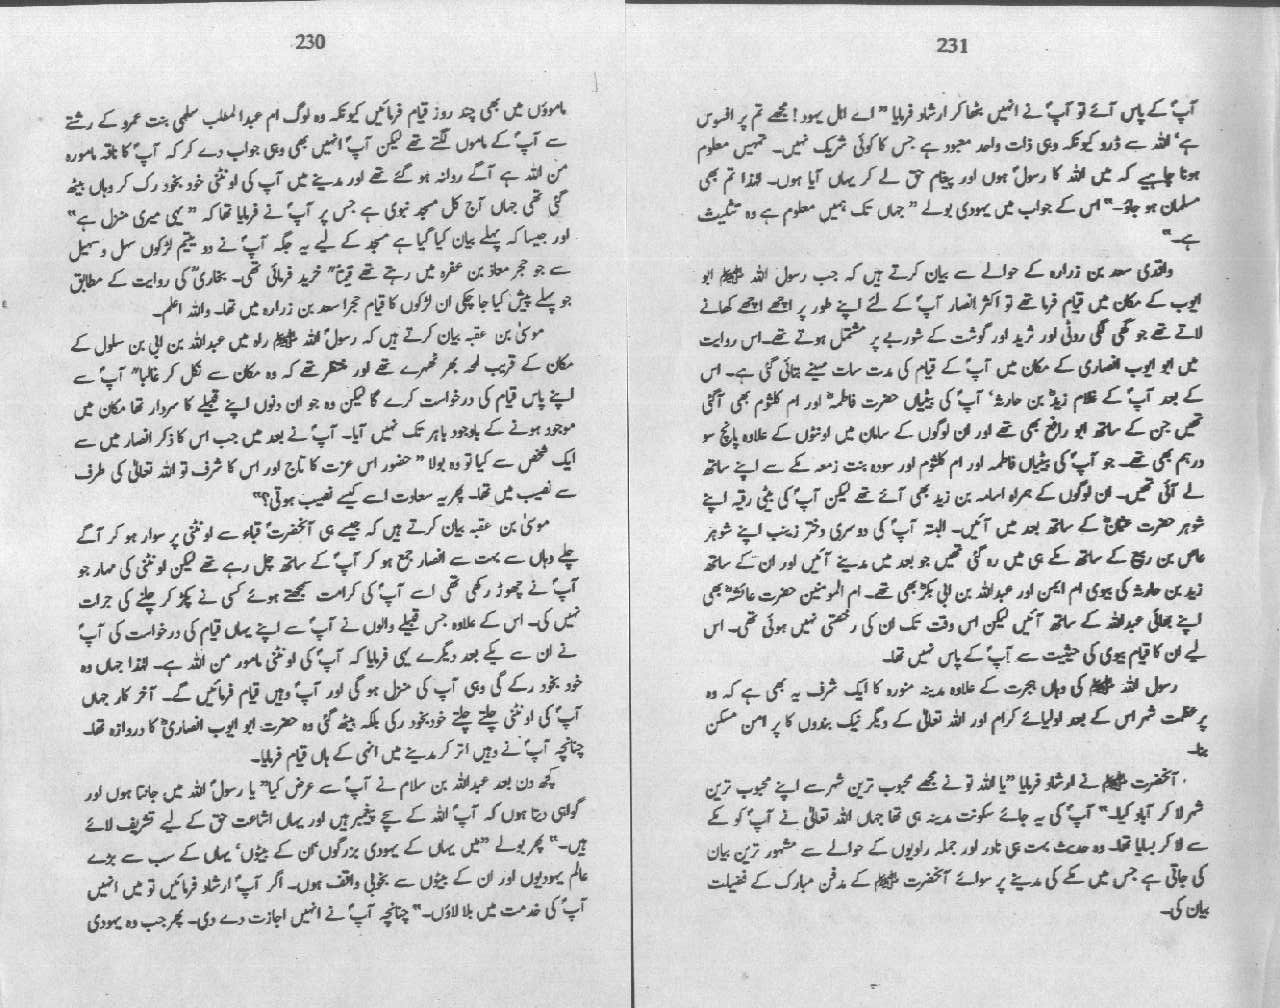 230
ماموؤں میں بھی چند روز قیام فرمائیں کیونکہ وہ لوگ ام عبدالمطلب سلمی بنت عمرو کے رشتے
سے آپؐ کے ماموں لگتے تھے لیکن آپؐ انہیں بھی وہی جواب دے کر کہ آپؐ کا ناقہ مامورہ
من اللہ ہے آگے روانہ ہو گئے تھے اور مدینے میں آپ کی اونٹنی خود بخود رک کر وہاں بیٹھ
گئی تھی جہاں آج کل مسجد نبوی ہے جس پر آپؐ نے فرمایا تھا کہ "یہی میری منزل ہے"
اور جیسا کہ پہلے بیان کیا گیا ہے مسجد کے لیے یہ جگہ آپؐ نے دو یتیم لڑکوں سہل و سہیل
سے جو حجر معاذ بن عفرہ میں رہتے تھے قیمتاً" خرید فرمائی تھی۔ بخاریؒ کی روایت کے مطابق
جو پہلے پیش کیا جا چکی ان لڑکوں کا قیام حجرا سعد بن زرارہ میں تھا۔ واللہ اعلم۔
موسیٰ بن عقبہ بیان کرتے ہیں کہ رسولؐ اللہ ﷺ راہ میں عبداللہ بن ابی بن سلول کے
مکان کے قریب لمحہ بھر ٹھہرے تھے اور منتظر تھے کہ وہ مکان سے نکل کر غالباً" آپؐ سے
اپنے پاس قیام کی درخواست کرے گا لیکن وہ جو ان دنوں اپنے قبیلے کا سردار تھا مکان میں
موجود ہونے کے باوجود باہر تک نہیں آیا۔ آپؐ نے بعد میں جب اس کا ذکر انصار میں سے
ایک شخص سے کیا تو وہ بولا "حضور اس عزت کا تاج اور اس کا شرف تو اللہ تعالیٰ کی طرف
سے نصیب میں تھا۔ پھر یہ سعادت اسے کیسے نصیب ہوتی؟"
موسیٰ بن عقبہ بیان کرتے ہیں کہ جیسے ہی آنحضرتؐ قباء سے اونٹنی پر سوار ہو کر آگے
چلے وہاں سے بہت سے انصار جمع ہو کر آپؐ کے ساتھ چل رہے تھے لیکن اونٹنی کی مہار جو
آپؐ نے چھوڑ رکھی تھی اسے آپؐ کی کرامت سمجھتے ہوئے کسی نے پکڑ کر چلنے کی جرات
نہیں کی۔ اس کے علاوہ جس قبیلے والوں نے آپؐ سے اپنے یہاں قیام کی درخواست کی آپؐ
نے ان سے یکے بعد دیگرے یہی فرمایا کہ آپؐ کی اونٹنی مامور من اللہ ہے۔ لہٰذا جہاں وہ
خود بخود رکے گی وہی آپ کی منزل ہو گی اور آپؐ وہیں قیام فرمائیں گے۔ آخر کار جہاں
آپؐ کی اونٹنی چلتے چلتے خودبخود رکی بلکہ بیٹھ گئی وہ حضرت ابو ایوب انصاریؓ کا دروازہ تھا۔
چنانچہ آپؐ نے وہیں اتر کر مدینے میں انہی کے ہاں قیام فرمایا۔
کچھ دن بعد عبداللہ بن سلام نے آپؐ سے عرض کیا" یا رسولؐ اللہ میں جانتا ہوں اور
گواہی دیتا ہوں کہ آپؐ اللہ کے سچے پیغمبر ہیں اور یہاں اشاعت حق کے لیے تشریف لائے
ہیں۔" پھر بولے "میں یہاں کے یہودی بزرگوں' ان کے بیٹوں' یہاں کے سب سے بڑے
عالم یہودیوں اور ان کے بیٹوں سے بخوبی واقف ہوں۔ اگر آپؐ ارشاد فرمائیں تو میں انہیں
آپؐ کی خدمت میں بلا لاؤں۔" چنانچہ آپؐ نے انہیں اجازت دے دی۔ پھر جب وہ یہودی
231
آپؐ کے پاس آئے تو آپؐ نے انہیں بٹھا کر ارشاد فرمایا "اے اہل یہود! مجھے تم پر افسوس
ہے' اللہ سے ڈرو کیونکہ وہی ذات واحد معبود ہے جس کا کوئی شریک نہیں۔ تمہیں معلوم
ہونا چاہیے کہ میں اللہ کا رسولؐ ہوں اور پیغام حق لے کر یہاں آیا ہوں۔ لہٰذا تم بھی
مسلمان ہو جاؤ۔" اس کے جواب میں یہودی بولے "جہاں تک ہمیں معلوم ہے وہ تثلیث
ہے۔"
واقدی سعد بن زرارہ کے حوالے سے بیان کرتے ہیں کہ جب رسول اللہ ﷺ ابو
ایوب کے مکان میں قیام فرما تھے تو اکثر انصار آپؐ کے لئے اپنے طور پر اچھے اچھے کھانے
لاتے تھے جو گھی لگی روٹی اور ثرید اور گوشت کے شوربے پر مشتمل ہوتے تھے۔ اس روایت
میں ابو ایوب انصاری کے مکان میں آپؐ کے قیام کی مدت سات مہینے بتائی گئی ہے۔ اس
کے بعد آپؐ کے غلام زیدؓ بن حارثہ' آپؐ کی بیٹیاں حضرت فاطمہؓ اور ام کلثوم بھی آگئی
تھیں جن کے ساتھ ابو رافع بھی تھے اور ان لوگوں کے سامان میں اونٹوں کے علاوہ پانچ سو
درہم بھی تھے۔ جو آپؐ کی بیٹیاں فاطمہ اور ام کلثوم اور سودہ بنت زمعہ مکے سے اپنے ساتھ
لے آئی تھیں۔ ان لوگوں کے ہمراہ اسامہ بن زید بھی آئے تھے لیکن آپؐ کی بیٹی رقیہ اپنے
شوہر حضرت عثمانؓ کے ساتھ بعد میں آئیں۔ البتہ آپؐ کی دوسری دختر زینب اپنے شوہر
عاص بن ربیع کے ساتھ مکے ہی میں رہ گئی تھیں جو بعد میں مدینے آئیں اور ان کے ساتھ
زید بن حارثہ کی بیوی ام ایمن اور عبداللہ بن ابی بکرؓ بھی تھے۔ ام المومنین حضرت عائشہؓ بھی
اپنے بھائی عبداللہ کے ساتھ آئیں لیکن اس وقت تک ان کی رخصتی نہیں ہوئی تھی۔ اس
لیے ان کا قیام بیوی کی حیثیت سے آپؐ کے پاس نہیں تھا۔
رسول اللہ ﷺ کی وہاں ہجرت کے علاوہ مدینہ منورہ کا ایک شرف یہ بھی ہے کہ وہ
پر عظمت شہر اس کے بعد اولیائے کرام اور اللہ تعالیٰ کے دیگر نیک بندوں کا پر امن مسکن
بنا۔
آنحضرت ﷺ نے ارشاد فرمایا "یا اللہ تو نے مجھے محبوب ترین شہر سے اپنے محبوب ترین
شہر لا کر آباد کیا۔" آپؐ کی یہ جائے سکونت مدینہ ہی تھا جہاں اللہ تعالیٰ نے آپؐ کو مکے
سے لا کر بسایا تھا۔ وہ حدیث بہت ہی نادر اور جملہ راویوں کے حوالے سے مشہور ترین بیان
کی جاتی ہے جس میں مکے کی مدینے پر سوائے آنحضرت ﷺ کے مدفن مبارک کے فضیلت
بیان کی۔